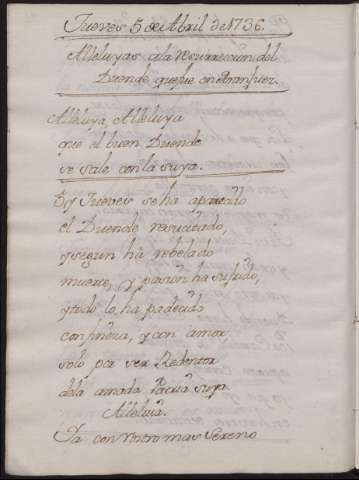 Jueves 5 de Abril de 1736.
Alleluyas a la resurreccion del
Duende, que fue en Aranjuez.
Alleluya, Alleluya
que el buen Duende
se sale con la suya.
Oy Jueves se ha aparezido
el Duende resucitado,
y segun ha rebelado
muerte, y pasion ha sufrido,
y todo lo ha padezido
con fineza, y con amor,
solo por ser Redentor
de la amada Patria suya
Alleluia.
Ya con rostro mas sereno